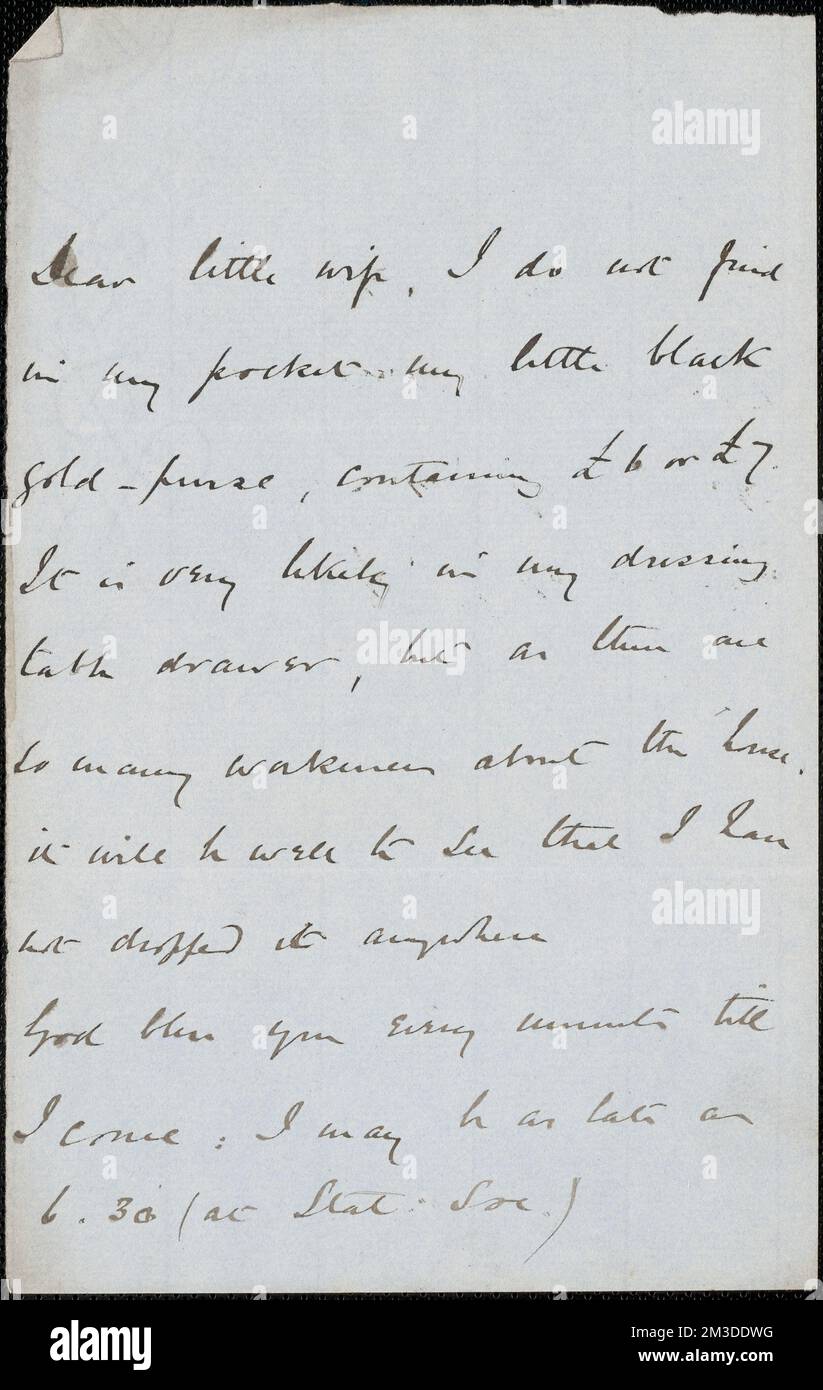 Dear little wife, I do not find
in my pocket my little black
gold-purse, containing £6 or £7.
It is very likely in my dressing
table drawer, but as there are
so many workmen about the house,
it will be well to see that I have
not dropped it anywhere
God bless you every minute till
I come: I may be as late as
6.30 (at Stat: Soc.)
a alamy
alamy
Image ID: 2M3DDWG
www.alamy.com